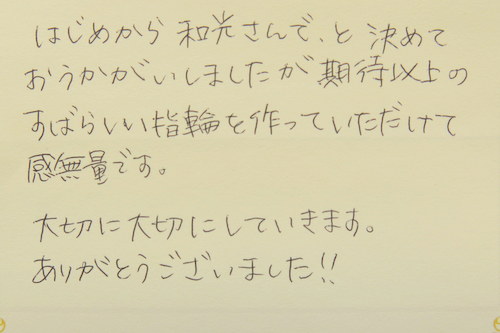 はじめから 和光さんで、と 決めて
おうかがいしましたが 期待以上の
すばらしい指輪を作っていただけて
感無量です。
大切に大切にしていきます。
ありがとうございました!!